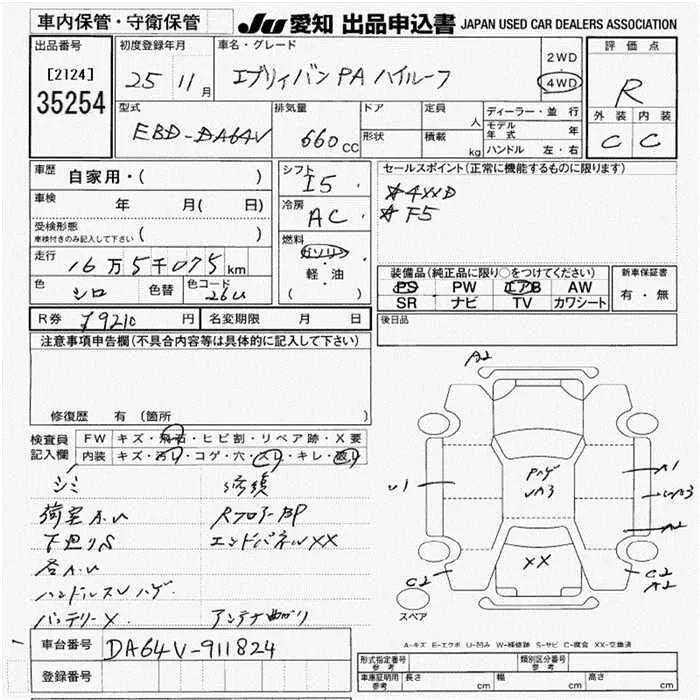 車内保管・守衛保管 JU 愛知 出品申込書 JAPAN USED CAR DEALERS ASSOCIATION
出品番号 初度登録年月 車名・グレード 評価点
[2124] 25 11月 エブリィバン PA ハイルーフ 2WD 4WD R
35254
型式 排気量 ドア 定員 人 ディーラー・並行 外装 内装
EBD-DA64V 660cc 形状 積載 kg モデル年式 年 C C
ハンドル 左・右
車歴 自家用・( ) シフト I5 セールスポイント(正常に機能するものに限ります)
車検 年 月(日) 冷房 AC ☆4XXD
受検形態 ( ) ☆F5
車検付きのみ記入して下さい
走行 16万5千075km 燃料 ガソリン
軽・油
( )
色 シロ 色替 色コード 26U
装備品(純品品に限り○をつけてください) 新車保証書
PS PW エアB AW 有・無
SR ナビ TV カワシート
R券 ¥9210円 名変期限 月 日 後日品
注意事項申告欄(不具合内容等は具体的に記入して下さい)
修復歴 有 (箇所 )
検査員記入欄 FW キズ・飛石・ヒビ割・リペア跡・X要
内装 キズ・汚レ・コゲ・穴・スレ・キレ・破レ
シミ 修復
荷室A.U RフロアーBP
下廻りS エンドパネルXX
各A.U
ハンドルスレハゲ
バッテリーX アンテナ曲がり
A2
U1
ハゲ
A1
A2
XX
C2
C2
A2
スペア
A-キズ E-エクボ U-凹み W-補修跡 S-サビ C-腐食 XX-交換済
車台番号 DA64V-911824
登録番号
形式指定番号 参考 類別区分番号 参考
車庫証明用 参考 長さ cm 幅 cm 高さ cm